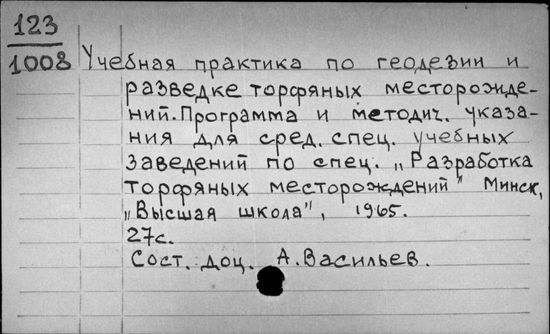 123
1008 Учебная практика по геодезии и
разведке торфяных месторожде-
ний. Программа и методич. указа-
ния для сред. спец. учебных
заведений по спец. „Разработка
торфяных месторождений" Минск,
„Высшая школа", 1965.
27с.
Сост. доц. А. Васильев.